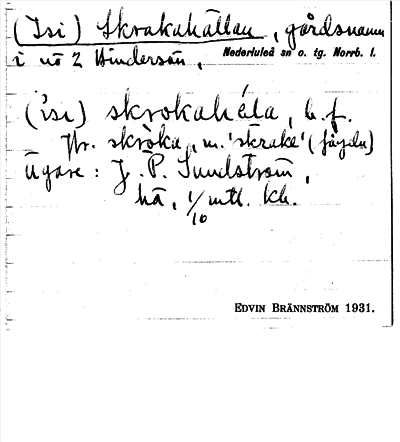 (Isi) Skrakahällan, gårdsnamn
i nö 2 Hindersön, Nederluleå sn o. tg. Norrb. l.
(ısı) skrokahéla, b. f.
Jfr. skròka, m. 'skrake' (fågeln)
Ägare: J. P. Sundström,
hä, 1/10 mtl. kh.
EDVIN BRÄNNSTRÖM 1931.